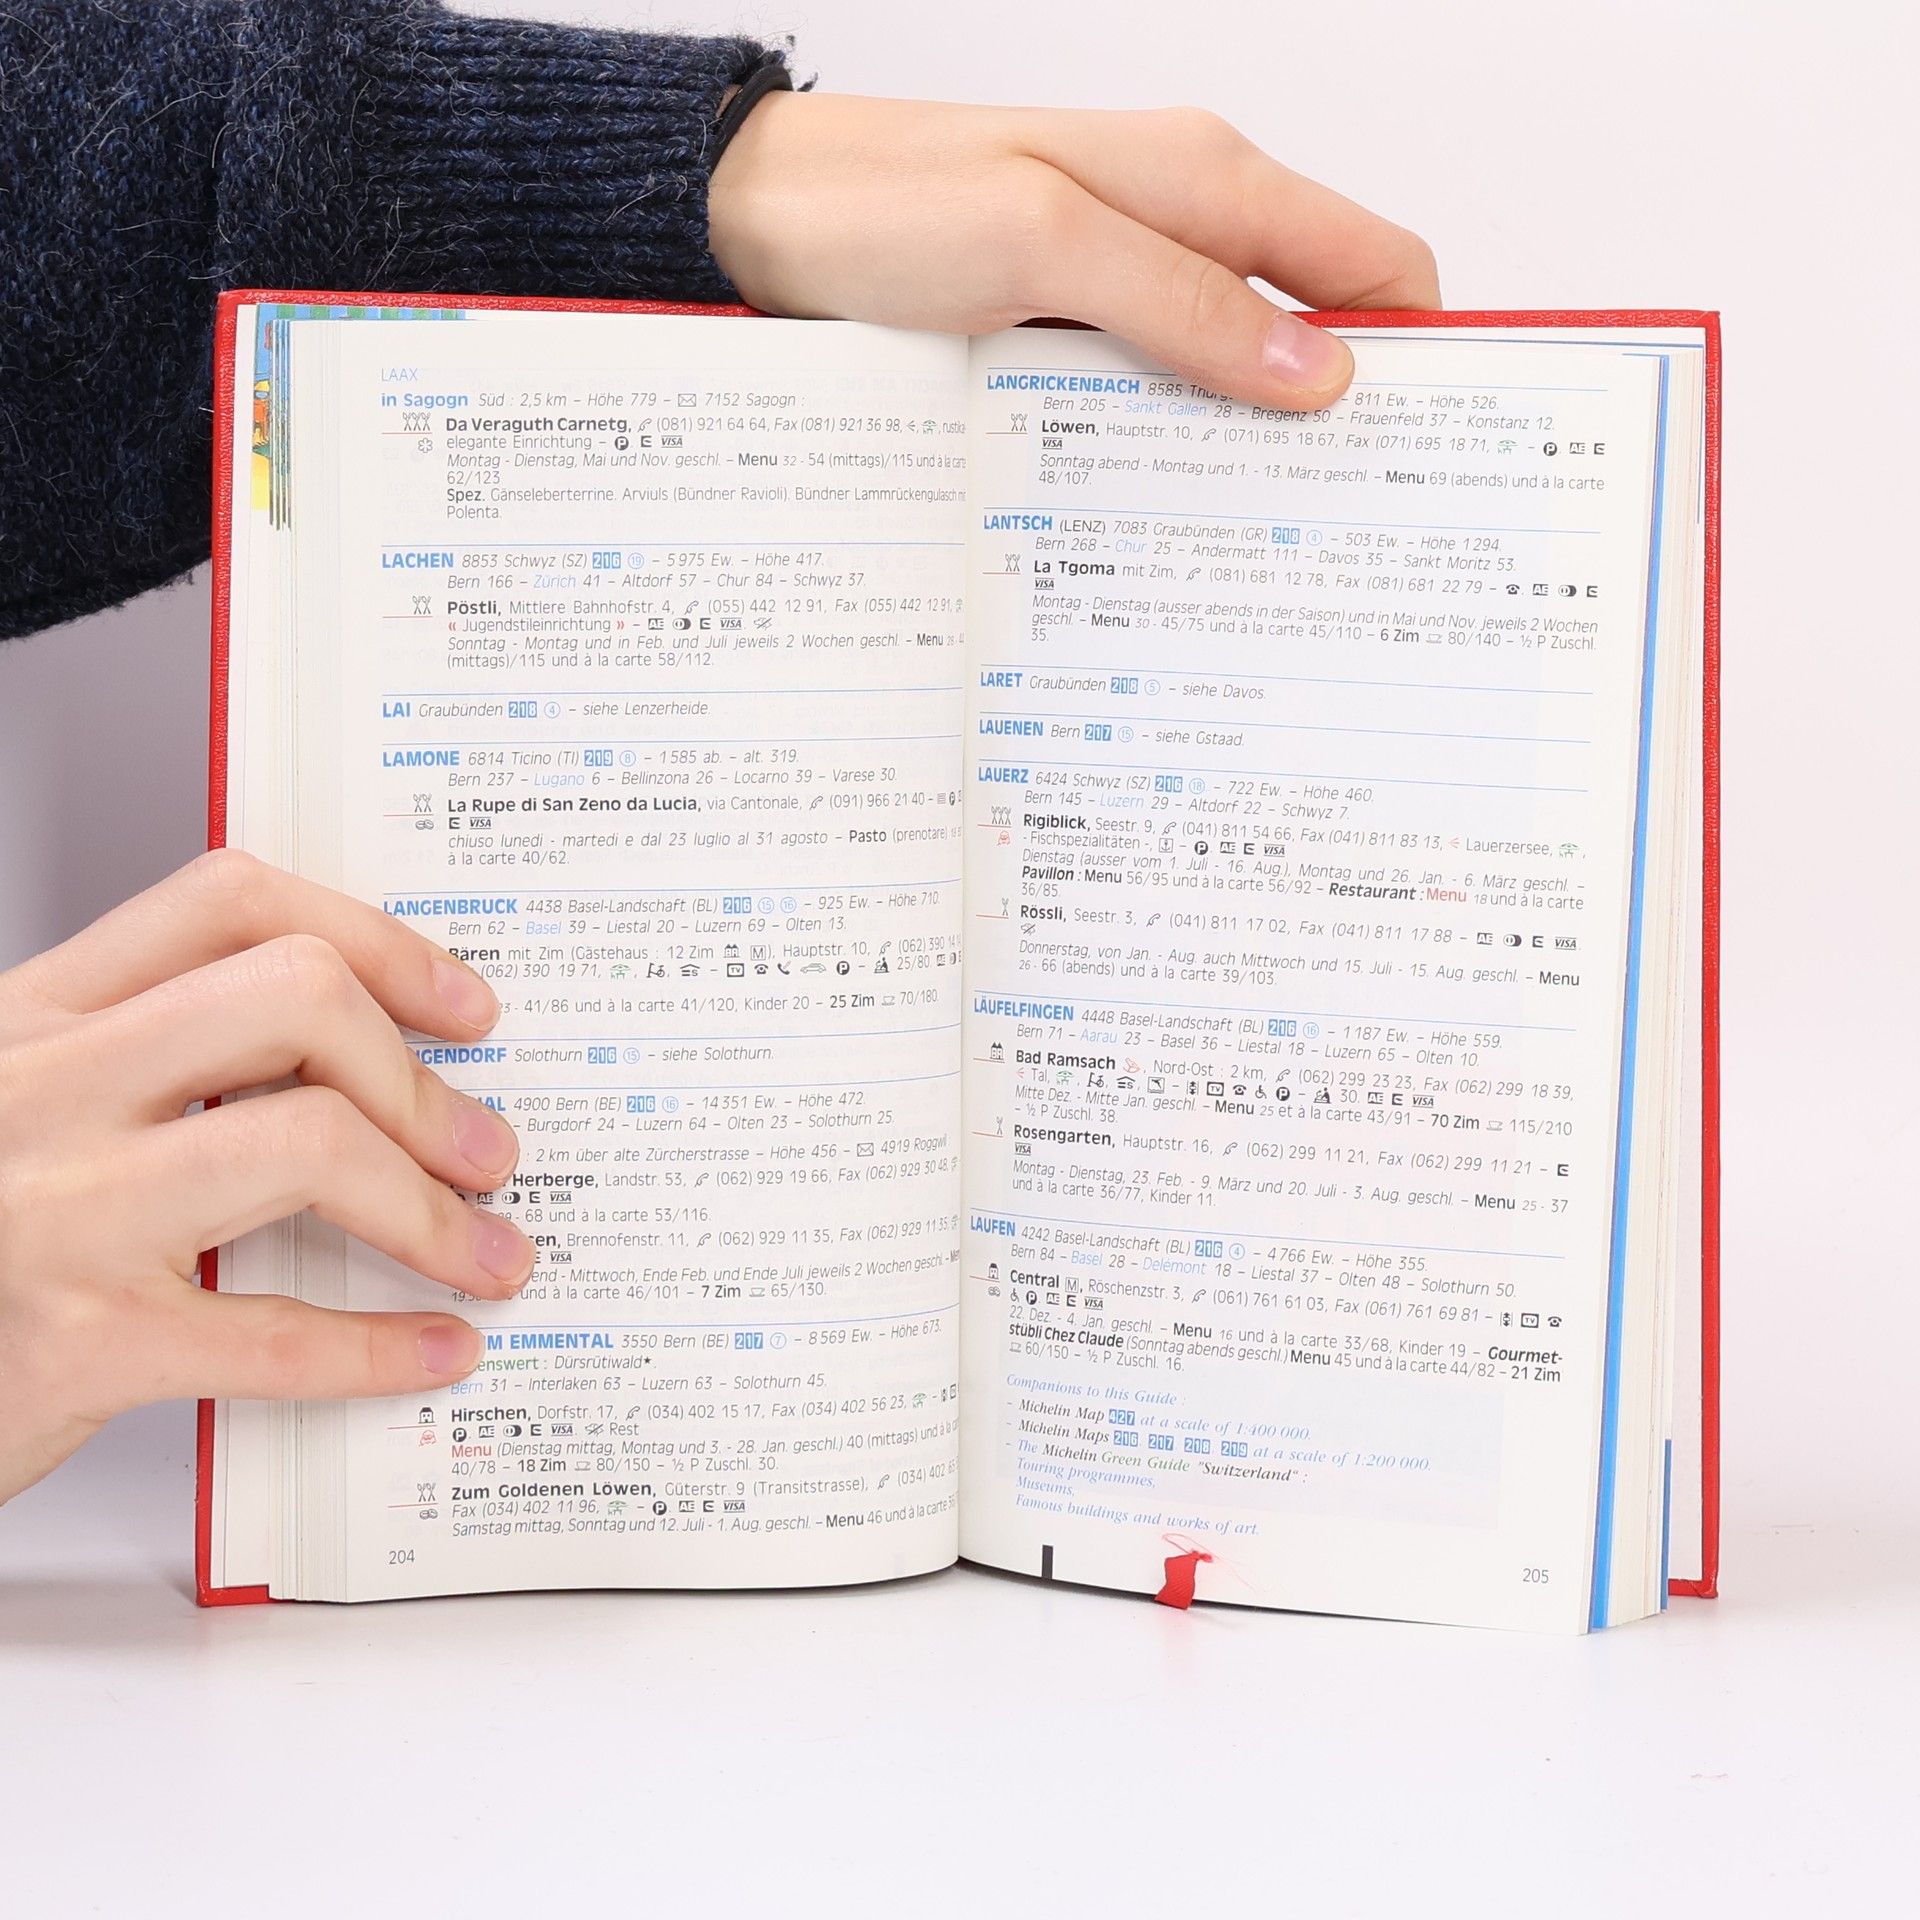 LAAX
in Sagogn Süd : 2,5 km – Höhe 779 – ✉ 7152 Sagogn :
Da Veraguth Carnetg, (081) 921 64 64, Fax (081) 921 36 98,
elegante Einrichtung – P E VISA
Montag - Dienstag, Mai und Nov. geschl. – Menu 32 - 54 (mittags)/115 und à la carte
62/123
Spez. Gänseleberterrine. Arviuls (Bündner Ravioli). Bündner Lammrückengulasch
Polenta.
LACHEN 8853 Schwyz (SZ) 216 ⑲ – 5 975 Ew. – Höhe 417.
Bern 166 – Zürich 41 – Altdorf 57 – Chur 84 – Schwyz 37.
Pöstli, Mittlere Bahnhofstr. 4, (055) 442 12 91, Fax (055) 442 12 91,
« Jugendstileinrichtung » – AE E VISA
Sonntag - Montag und in Feb. und Juli jeweils 2 Wochen geschl. – Menu
(mittags)/115 und à la carte 58/112.
LAI Graubünden 218 ④ – siehe Lenzerheide.
LAMONE 6814 Ticino (TI) 219 ⑧ – 1 585 ab. – alt. 319.
Bern 237 – Lugano 6 – Bellinzona 26 – Locarno 39 – Varese 30.
La Rupe di San Zeno da Lucia, via Cantonale, (091) 966 21 40 – P
E VISA
chiuso lunedi - martedi e dal 23 luglio al 31 agosto – Pasto (prenotare)
à la carte 40/62.
LANGENBRUCK 4438 Basel-Landschaft (BL) 216 ⑮ ⑯ – 925 Ew. – Höhe 710.
Bern 62 – Basel 39 – Liestal 20 – Luzern 69 – Olten 13.
Bären mit Zim (Gästehaus : 12 Zim M), Hauptstr. 10, (062) 390 14
(062) 390 19 71, – TV P – 25/80. AE
- 41/86 und à la carte 41/120, Kinder 20 – 25 Zim 70/180.
GENDORF Solothurn 216 ⑮ – siehe Solothurn.
AL 4900 Bern (BE) 216 ⑯ – 14 351 Ew. – Höhe 472.
– Burgdorf 24 – Luzern 64 – Olten 23 – Solothurn 25.
: 2 km über alte Zürcherstrasse – Höhe 456 – ✉ 4919 Roggwil
Herberge, Landstr. 53, (062) 929 19 66, Fax (062) 929 30 48,
AE E VISA
- 68 und à la carte 53/116.
sen, Brennofenstr. 11, (062) 929 11 35, Fax (062) 929 11 35,
E VISA
end - Mittwoch, Ende Feb. und Ende Juli jeweils 2 Wochen geschl. –
und à la carte 46/101 – 7 Zim 65/130.
M EMMENTAL 3550 Bern (BE) 217 ⑦ – 8 569 Ew. – Höhe 673.
enswert : Dürsrütiwald★.
Bern 31 – Interlaken 63 – Luzern 63 – Solothurn 45.
Hirschen, Dorfstr. 17, (034) 402 15 17, Fax (034) 402 56 23, –
P. AE E VISA. Rest
Menu (Dienstag mittag, Montag und 3. - 28. Jan. geschl.) 40 (mittags) und à la
40/78 – 18 Zim 80/150 – ½ P Zuschl. 30.
Zum Goldenen Löwen, Güterstr. 9 (Transitstrasse), (034) 402
Fax (034) 402 11 96, – P AE E VISA
Samstag mittag, Sonntag und 12. Juli - 1. Aug. geschl. – Menu 46 und à la carte
204
LANGRICKENBACH 8585 – 811 Ew. – Höhe 526.
Bern 205 – Sankt Gallen 28 – Bregenz 50 – Frauenfeld 37 – Konstanz 12.
Löwen, Hauptstr. 10, (071) 695 18 67, Fax (071) 695 18 71, – P. AE E
VISA
Sonntag abend - Montag und 1. - 13. März geschl. – Menu 69 (abends) und à la carte
48/107.
LANTSCH (LENZ) 7083 Graubünden (GR) 218 ④ – 503 Ew. – Höhe 1 294.
Bern 268 – Chur 25 – Andermatt 111 – Davos 35 – Sankt Moritz 53.
La Tgoma mit Zim, (081) 681 12 78, Fax (081) 681 22 79 – ☎. AE E
VISA
Montag - Dienstag (ausser abends in der Saison) und in Mai und Nov. jeweils 2 Wochen
geschl. – Menu 30 - 45/75 und à la carte 45/110 – 6 Zim 80/140 – ½ P Zuschl.
35.
LARET Graubünden 218 ⑤ – siehe Davos.
LAUENEN Bern 217 ⑮ – siehe Gstaad.
LAUERZ 6424 Schwyz (SZ) 216 ⑱ – 722 Ew. – Höhe 460.
Bern 145 – Luzern 29 – Altdorf 22 – Schwyz 7.
Rigiblick, Seestr. 9, (041) 811 54 66, Fax (041) 811 83 13, Lauerzersee, ,
- Fischspezialitäten -, – P. AE E VISA
Dienstag (ausser vom 1. Juli - 16. Aug.), Montag und 26. Jan. - 6. März geschl. –
Pavillon : Menu 56/95 und à la carte 56/92 – Restaurant : Menu 18 und à la carte
36/85.
Rössli, Seestr. 3, (041) 811 17 02, Fax (041) 811 17 88 – AE E VISA.
Donnerstag, von Jan. - Aug. auch Mittwoch und 15. Juli - 15. Aug. geschl. – Menu
26 - 66 (abends) und à la carte 39/103.
LÄUFELFINGEN 4448 Basel-Landschaft (BL) 216 ⑯ – 1 187 Ew. – Höhe 559.
Bern 71 – Aarau 23 – Basel 36 – Liestal 18 – Luzern 65 – Olten 10.
Bad Ramsach , Nord-Ost : 2 km, (062) 299 23 23, Fax (062) 299 18 39,
Tal, – TV ☎ P – 30. AE E VISA
Mitte Dez. - Mitte Jan. geschl. – Menu 25 et à la carte 43/91 – 70 Zim 115/210
– ½ P Zuschl. 38.
Rosengarten, Hauptstr. 16, (062) 299 11 21, Fax (062) 299 11 21 – E
VISA
Montag - Dienstag, 23. Feb. - 9. März und 20. Juli - 3. Aug. geschl. – Menu 25 - 37
und à la carte 36/77, Kinder 11.
LAUFEN 4242 Basel-Landschaft (BL) 216 ④ – 4 766 Ew. – Höhe 355.
Bern 84 – Basel 28 – Delémont 18 – Liestal 37 – Olten 48 – Solothurn 50.
Central M, Röschenzstr. 3, (061) 761 61 03, Fax (061) 761 69 81 – TV ☎
P. AE E VISA
22. Dez. - 4. Jan. geschl. – Menu 16 und à la carte 33/68, Kinder 19 – Gourmet-
stübli Chez Claude (Sonntag abends geschl.) Menu 45 und à la carte 44/82 – 21 Zim
60/150 – ½ P Zuschl. 16.
Companions to this Guide :
- Michelin Map 427 at a scale of 1:400 000.
- Michelin Maps 216, 217, 218, 219 at a scale of 1:200 000.
- The Michelin Green Guide "Switzerland" :
Touring programmes,
Museums,
Famous buildings and works of art.
205